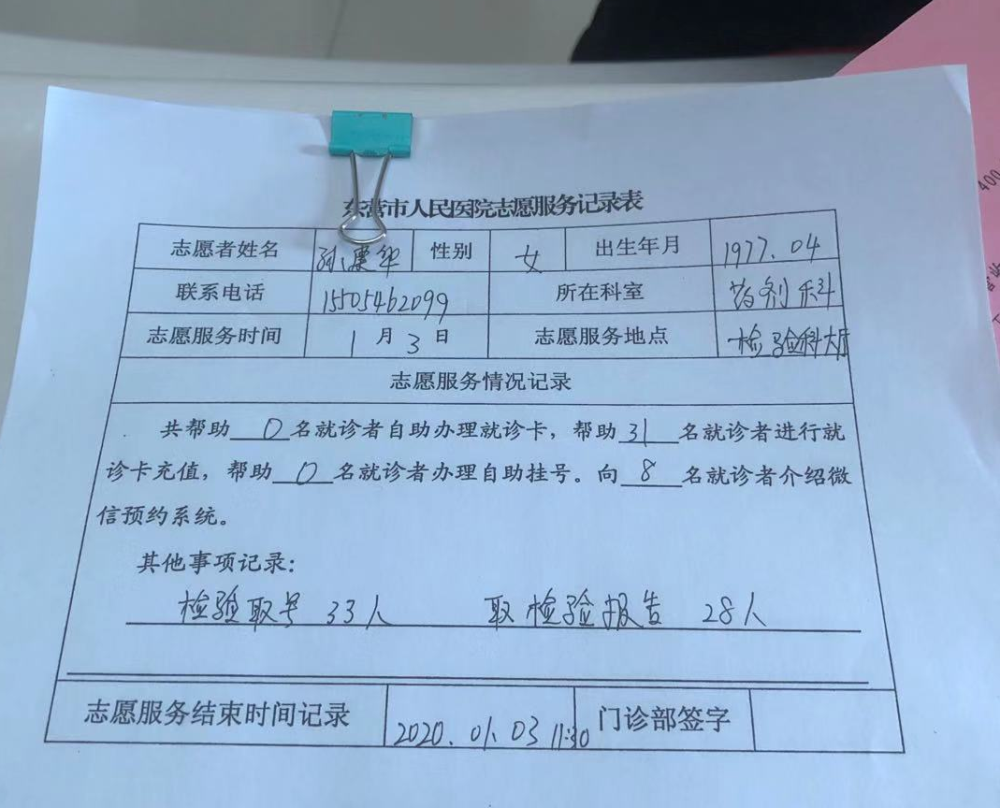 东营市人民医院志愿服务记录表
志愿者姓名 孙建华 性别 女 出生年月 1977.04
联系电话 15505462099 所在科室 药剂科
志愿服务时间 1月3日 志愿服务地点 检验科大厅
志愿服务情况记录
共帮助0名就诊者自助办理就诊卡，帮助31名就诊者进行就
诊卡充值，帮助0名就诊者办理自助挂号。向8名就诊者介绍微
信预约系统。
其他事项记录：
检验取号 33人 取检验报告 28人
志愿服务结束时间记录 2020.01.03 11:30 门诊部签字
400